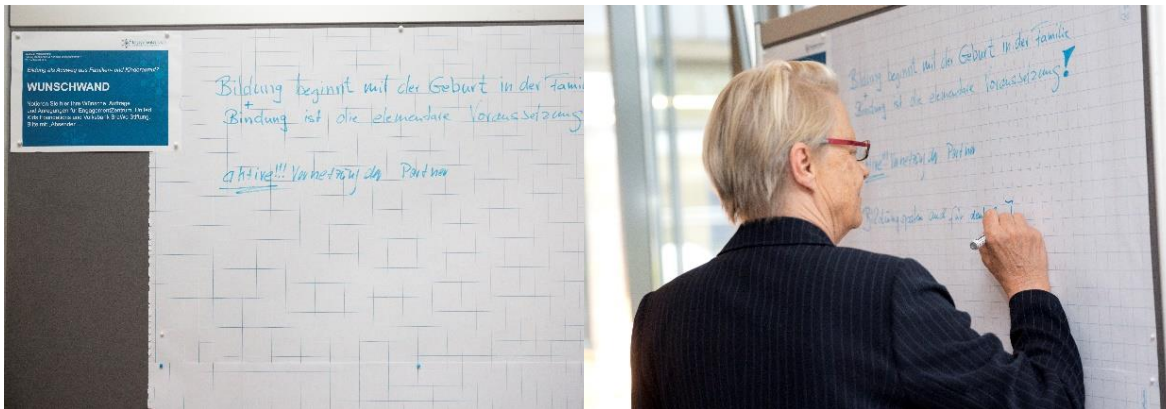 Bildung als Ausweg aus Familien- und Kinderarmut?
WUNSCHWAND
Notieren Sie hier Ihre Wünsche, Aufträge
und Anregungen für EngagementZentrum, United
Kids Foundations und Volksbank BraWo Stiftung.
Bitte mit „Absender“
Bildung beginnt mit der Geburt in der Fami
+
Bindung ist die elementare Voraussetzung
aktive!!! Vernetzung der Partner
Bildung beginnt mit der Geburt in der Familie
Bindung ist die elementare Voraussetzung!
!!! Vernetzung der Partner
sind für